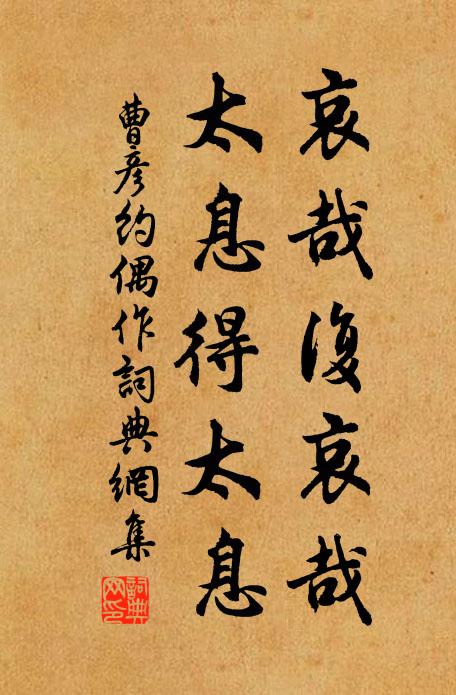 哀哉復哀哉
太息得太息
曹彦約偶作詞典網集
詞典網印